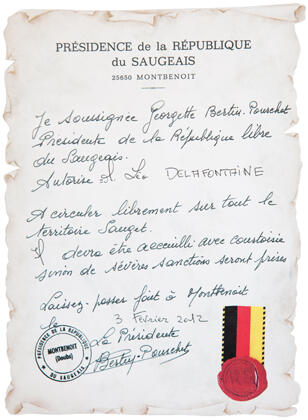 PRÉSIDENCE de la RÉPUBLIQUE
du SAUGEAIS
25650 MONTBENOIT
Je soussignée Georgette Bertin-Pourchet
Présidente de la République libre
du Saugeais.
Autorise M Léo DELAFONTAINE
A circuler librement sur tout le
territoire Sauget.
Il devra être accueilli avec courtoisie
sinon de sévères sanctions seront prises
Laissez-passer fait à Montbenoit
le 3 Février 2012
La Présidente
Bertin-Pourchet
PRÉSIDENCE DE LA RÉPUBLIQUE
MONTBENOIT
(Doubs)
DU SAUGEAIS